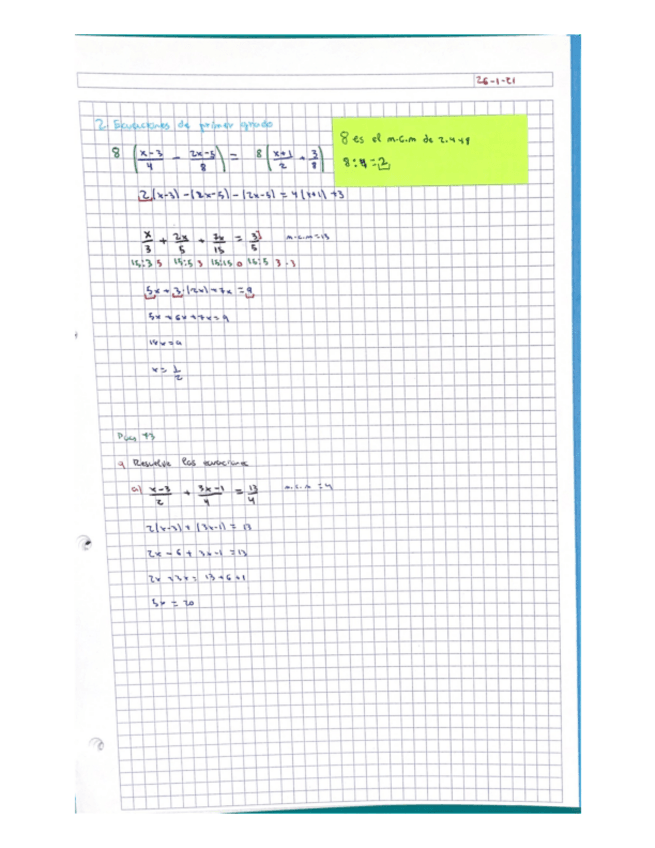 26-1-21
2. Ecuaciones de primer grado
8 es el m.c.m de 2, 4 y 8
8 : 4 = 2
8 ( x-3/4 - 2x-5/8 ) = 8 ( x+1/2 + 3/8 )
2(x-3) - (2x-5) - (2x-5) = 4(x+1) +3
x/3 + 2x/5 + 7x/15 = 3/5 m.c.m = 15
15:3 5 15:5 3 15:15 0 15:5 3·3
5x + 3·(2x) + 7x = 9
5x + 6x + 7x = 9
18x = 9
x = 1/2
Pág 73
9 Resuelve las ecuaciones
a) x-3/2 + 3x-1/4 = 13/4 m.c.m = 4
2(x-3) + (3x-1) = 13
2x - 6 + 3x - 1 = 13
2x + 3x = 13 + 6 + 1
5x = 20